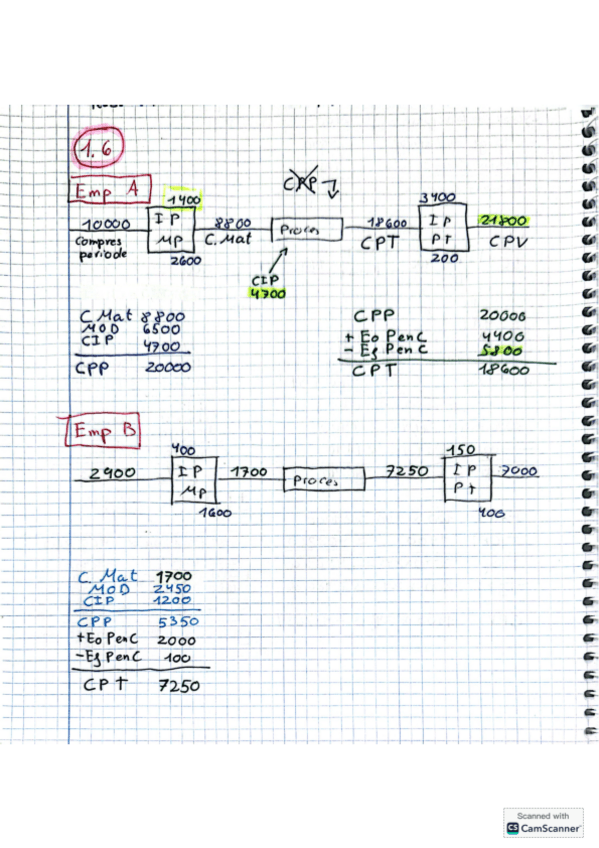 1.6
Emp A
CRP
1400
3400
10000
IP
8800
Proces
18600
IP
21800
Compres
MP
C. Mat
CPT
PT
CPV
periode
2600
200
CIP
4700
C Mat 8800
MOD 6500
CIP 4700
CPP 20000
CPP 20000
+ Eo PenC 4400
- Ef PenC 5800
CPT 18600
Emp B
400
150
2900
IP
1700
Proces
7250
IP
7000
MP
Pt
1600
400
C. Mat 1700
MOD 2450
CIP 1200
CPP 5350
+Eo PenC 2000
-Ef PenC 100
CPT 7250
Scanned with
CS CamScanner